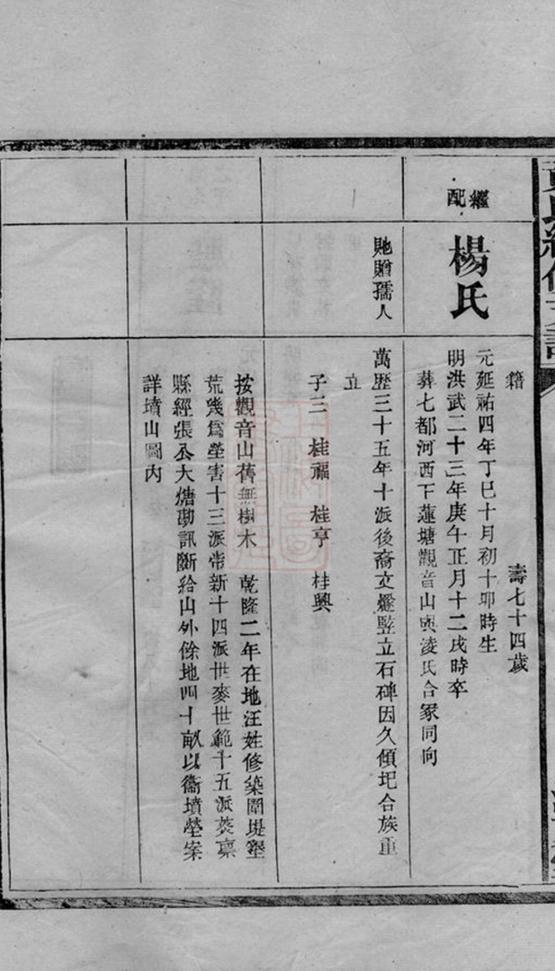 繼配
楊氏
貤贈孺人
籍　壽七十四歲
元延祐四年丁巳十月初十卯時生
明洪武二十三年庚午正月十二戌時卒
葬七都河西下蓮塘觀音山與淩氏合冢同向
萬歷三十五年十派後裔文燿豎立石碑因久傾圮合族重
立
子三　桂福　桂亨　桂興
按觀音山舊無樹木　乾隆二年在地汪姓修築圍堤墾
荒幾爲塋害十三派帝新十四派世麥世範十五派熒稟
縣經張公大燏勘訊斷給山外餘地四十畝以衞墳塋案
詳墳山圖內